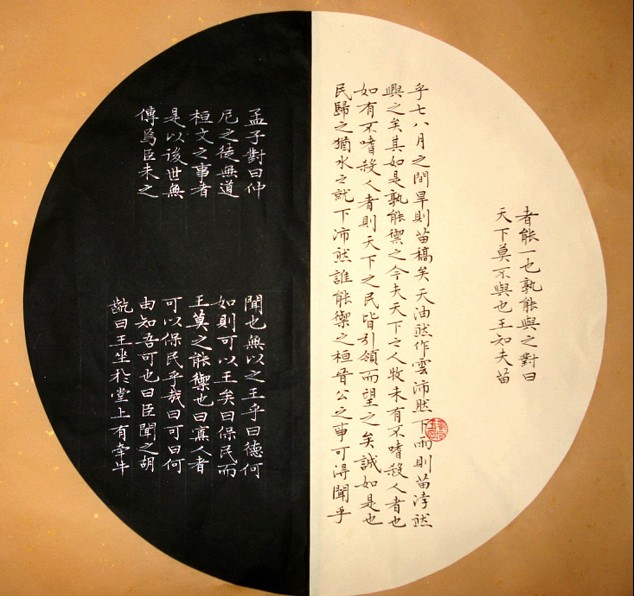 者能一也孰能與之對曰
天下莫不與也王知夫苗
乎七八月之閒旱則苗槁矣天油然作雲沛然下雨則苗浡然
興之矣其如是孰能禦之今夫天下之人牧未有不嗜殺人者也
如有不嗜殺人者則天下之民皆引領而望之矣誠如是也
民歸之猶水之就下沛然誰能禦之桓晉公之事可得聞乎
孟子對曰仲
尼之徒無道
桓文之事者
是以後世無
傳焉臣未之
聞也無以之王乎曰德何
如則可以王矣曰保民而
王莫之能禦也曰寡人者
可以保民乎哉曰可曰何
由知吾可也曰臣聞之胡
齕曰王坐於堂上有牽牛